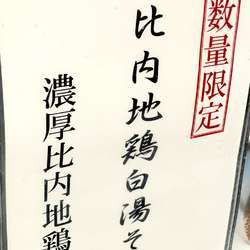 数量限定
比内地鶏白湯そ
濃厚比内地鶏